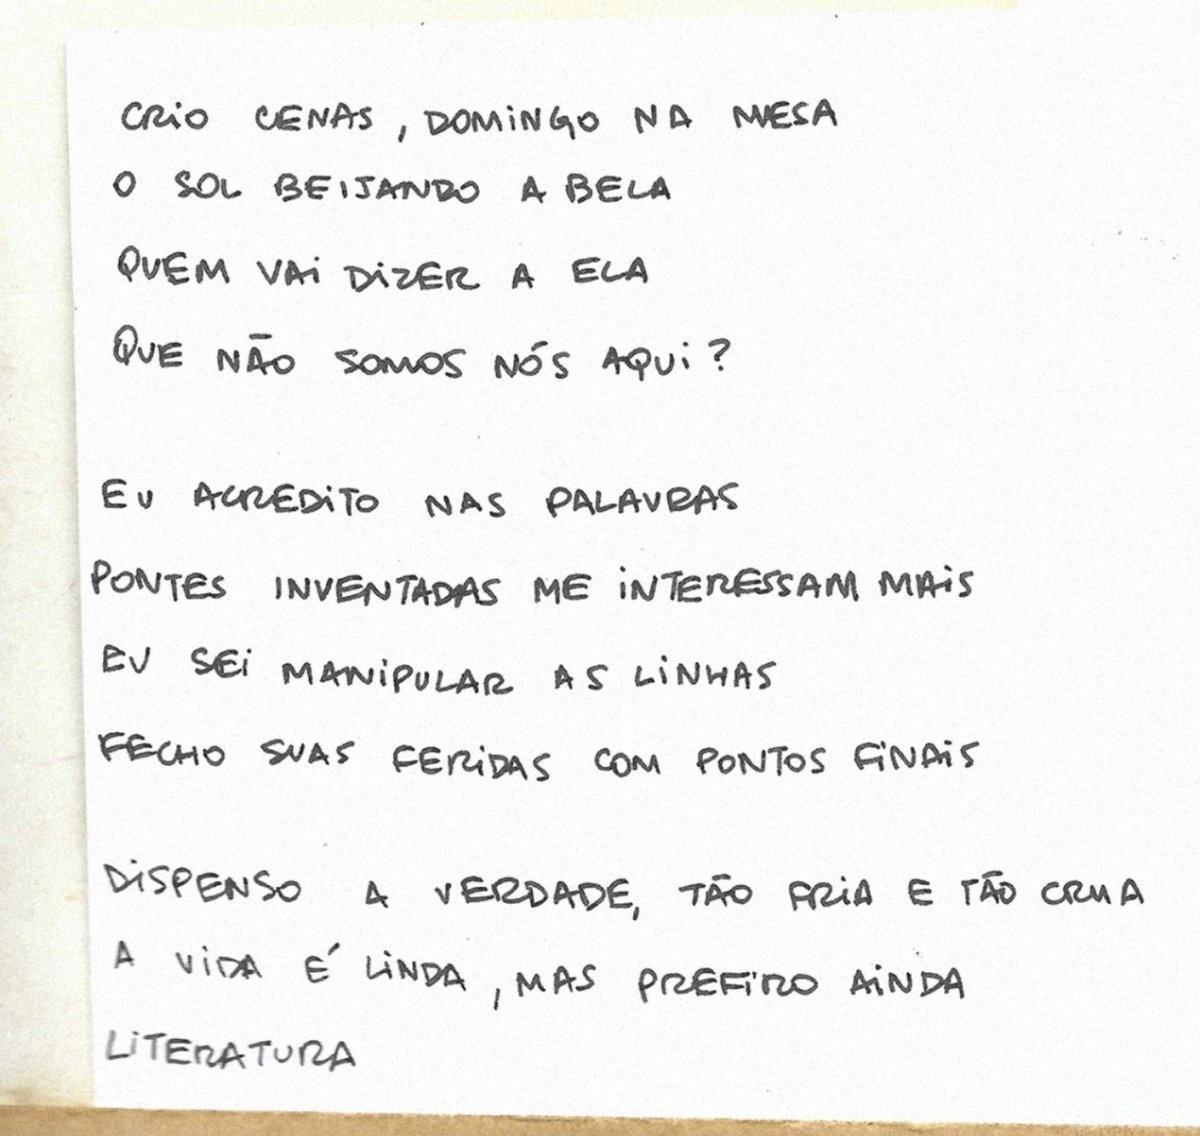 CRIO CENAS, DOMINGO NA MESA
O SOL BEIJANDO A BELA
QUEM VAI DIZER A ELA
QUE NÃO SOMOS NÓS AQUI?
EU ACREDITO NAS PALAVRAS
PONTES INVENTADAS ME INTERESSAM MAIS
EU SEI MANIPULAR AS LINHAS
FECHO SUAS FERIDAS COM PONTOS FINAIS
DISPENSO A VERDADE, TÃO FRIA E TÃO CRUA
A VIDA É LINDA, MAS PREFIRO AINDA
LITERATURA